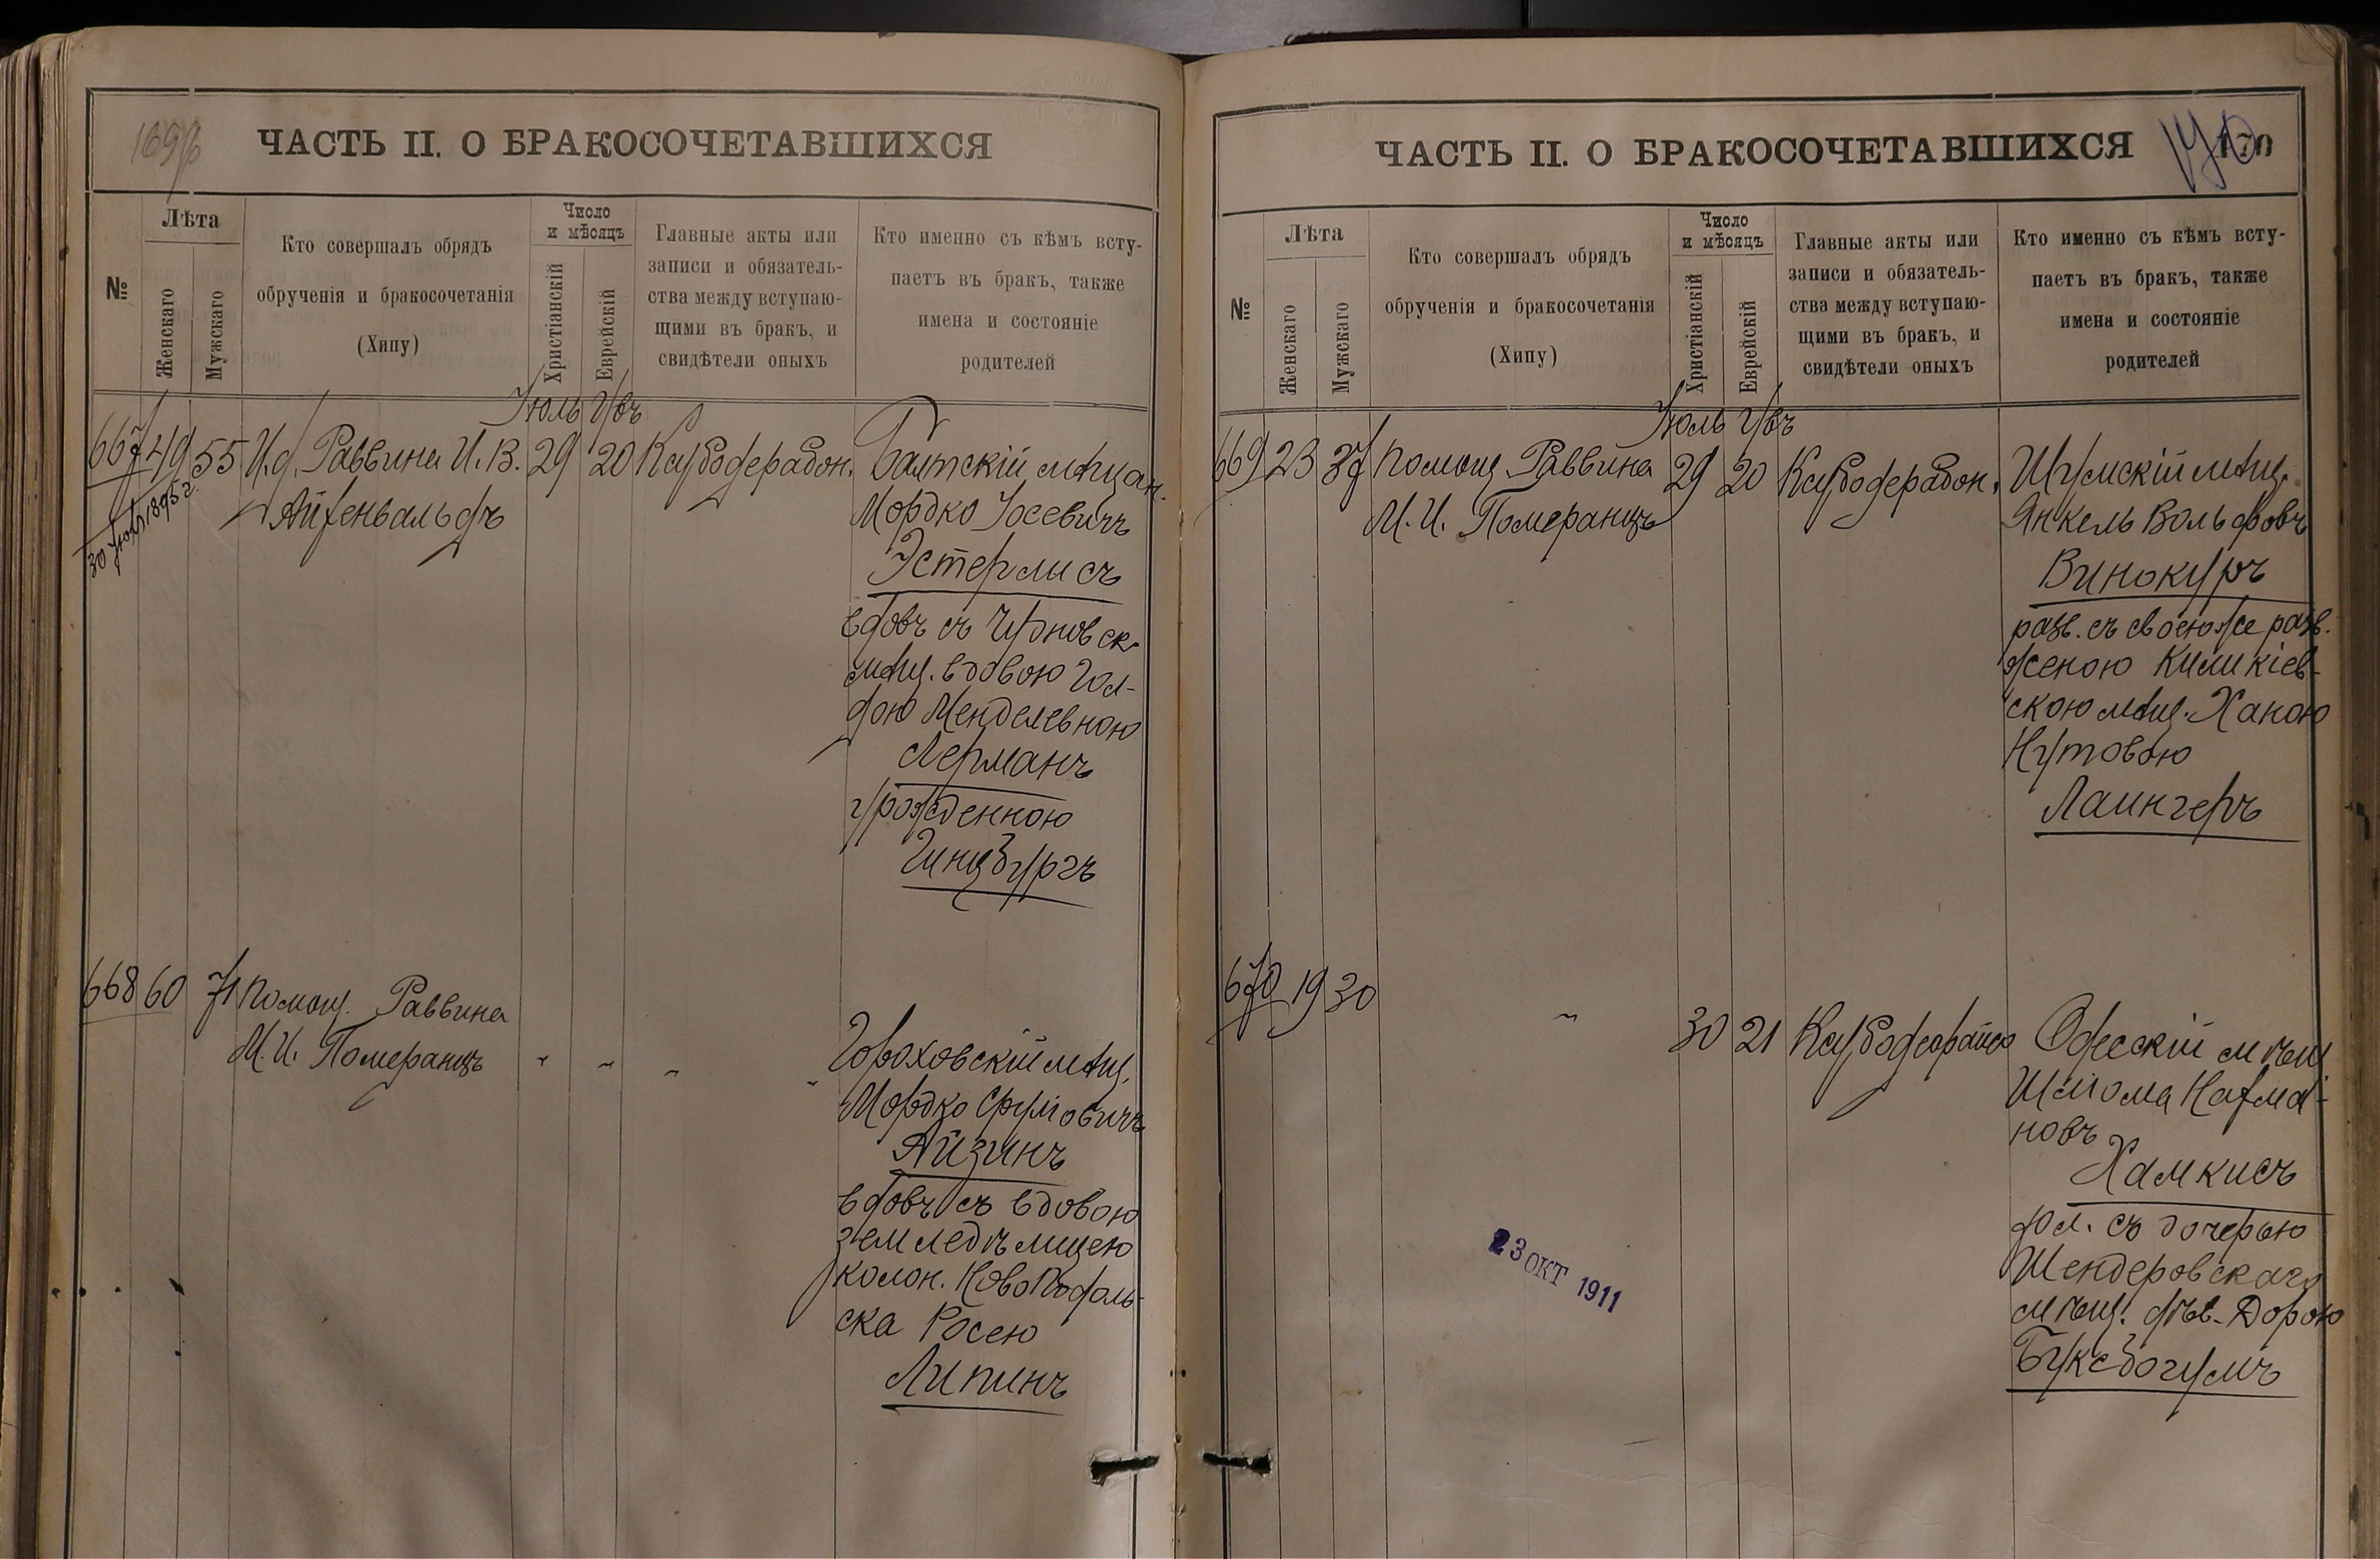 169
ЧАСТЬ II. О БРАКОСОЧЕТАВШИХСЯ
№
Лѣта
Женскаго
Мужскаго
Кто совершалъ обрядъ
обрученія и бракосочетанія
(Хипу)
Число
и мѣсяцъ
Христіанскій
Еврейскій
Главные акты или
записи и обязатель-
ства между вступаю-
щими въ бракъ, и
свидѣтели оныхъ
Кто именно съ кѣмъ всту-
паетъ въ бракъ, также
имена и состояніе
родителей
Іюль
667 49 55 И.д. Раввина И. В. 29 20
Айхенвальдъ
30 1895 г.
Балтскій мѣщан.
Мордко Іосевичъ
Эстерлисъ
вдовъ съ
мѣщ. вдовою Гол-
дою Менделевною
Лерманъ
урожденною
Гинцбургъ
668 60 71 Помощ. Раввина
М. И. Померанцъ
Гороховскій мѣщ.
Мордко Сруловичъ
Айзинъ
вдовъ съ вдовою
земледѣлицею
колон. Новоподоль-
ска Росею
Липинъ
ЧАСТЬ II. О БРАКОСОЧЕТАВШИХСЯ
170
№
Лѣта
Женскаго
Мужскаго
Кто совершалъ обрядъ
обрученія и бракосочетанія
(Хипу)
Число
и мѣсяцъ
Христіанскій
Еврейскій
Главные акты или
записи и обязатель-
ства между вступаю-
щими въ бракъ, и
свидѣтели оныхъ
Кто именно съ кѣмъ всту-
паетъ въ бракъ, также
имена и состояніе
родителей
Іюль
669 23 37 Помощ. Раввина 29 20
М. И. Померанцъ
мѣщ.
Янкель Вольфовъ
Винокуръ
разв. съ своею же разв.
женою Киликіев-
скою мѣщ. Ханою
Нутовою
Лаингеръ
670 19 30
30 21
Одесскій мѣщ
Шлома Нахма-
новъ
Хамкисъ
хол. съ дочерью
Шендеровскаго
мѣщ. дѣв. Дорою
Буксбогумъ
23 ОКТ 1911